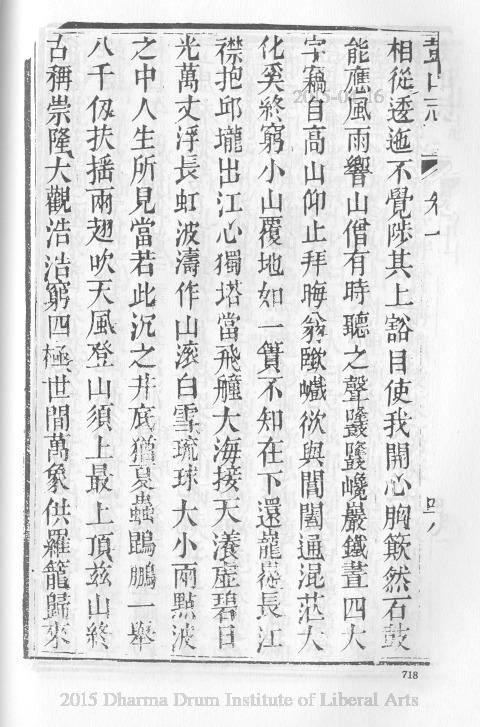 鼓山志 卷一
相從逶迤不覺陟其上豁目使我開心胸簸然石鼓
能應風雨響山僧有時聽之聲鼟鼟巉巖鐵畫四大
字竊自高山仰止拜晦翁歐蠛欲與閶闔通混茫大
化奚終窮小山覆地如一簣不知在下還巃嵸長江
襟抱邱壠出江心獨塔當飛艟大海接天瀁虛碧日
光萬丈浮長虹波濤作山滚白雪琉球大小兩點波
之中人生所見當若此沉之井底猶夏蟲鵾鵬一舉
八千仭扶搖兩翅吹天風登山須上最上頂兹山終
古稱崇隆大觀浩浩窮四極世間萬象供羅籠歸來
718
2015 Dharma Drum Institute of Liberal Arts